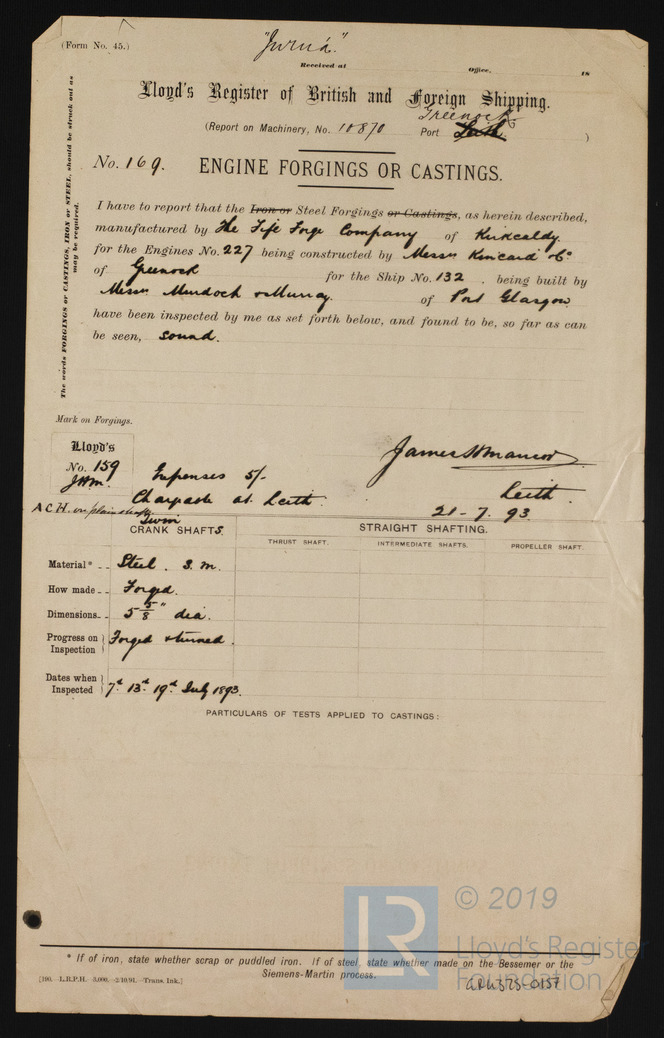 (Form No. 45.)
"Juruá."
Received at Office, 18
Lloyd's Register of British and Foreign Shipping.
Greenock
(Report on Machinery, No. 10870 Port Leith )
No. 169. ENGINE FORGINGS OR CASTINGS.
The words FORGINGS or CASTINGS, IRON or STEEL, should be struck out as may be required.
I have to report that the Iron or Steel Forgings or Castings, as herein described,
manufactured by The Fife Forge Company of Kirkcaldy
for the Engines No. 227 being constructed by Messrs Kincaid & Co
of Greenock for the Ship No. 132 . being built by
Messrs Murdoch & Murray. of Port Glasgow
have been inspected by me as set forth below, and found to be, so far as can
be seen, sound.
Mark on Forgings.
Lloyd's
No. 159
JHM.
Expenses 5/-
Chargeable at Leith.
James H Mancor
Leith.
21-7.93.
A C H. on plain shaft.
Twin
CRANK SHAFTS. STRAIGHT SHAFTING.
THRUST SHAFT. INTERMEDIATE SHAFTS. PROPELLER SHAFT.
Material* Steel. S.M.
How made Forged.
Dimensions 5 5/8" dia.
Progress on Inspection Forged & turned.
Dates when Inspected 7th 13th 19th July 1893.
PARTICULARS OF TESTS APPLIED TO CASTINGS:
LR © 2019
Lloyd's Register
Foundation
* If of iron, state whether scrap or puddled iron. If of steel, state whether made on the Bessemer or the
Siemens-Martin process.
[100. L.R.P.H. 3,000. -2/10/91. -Trans. Ink.]